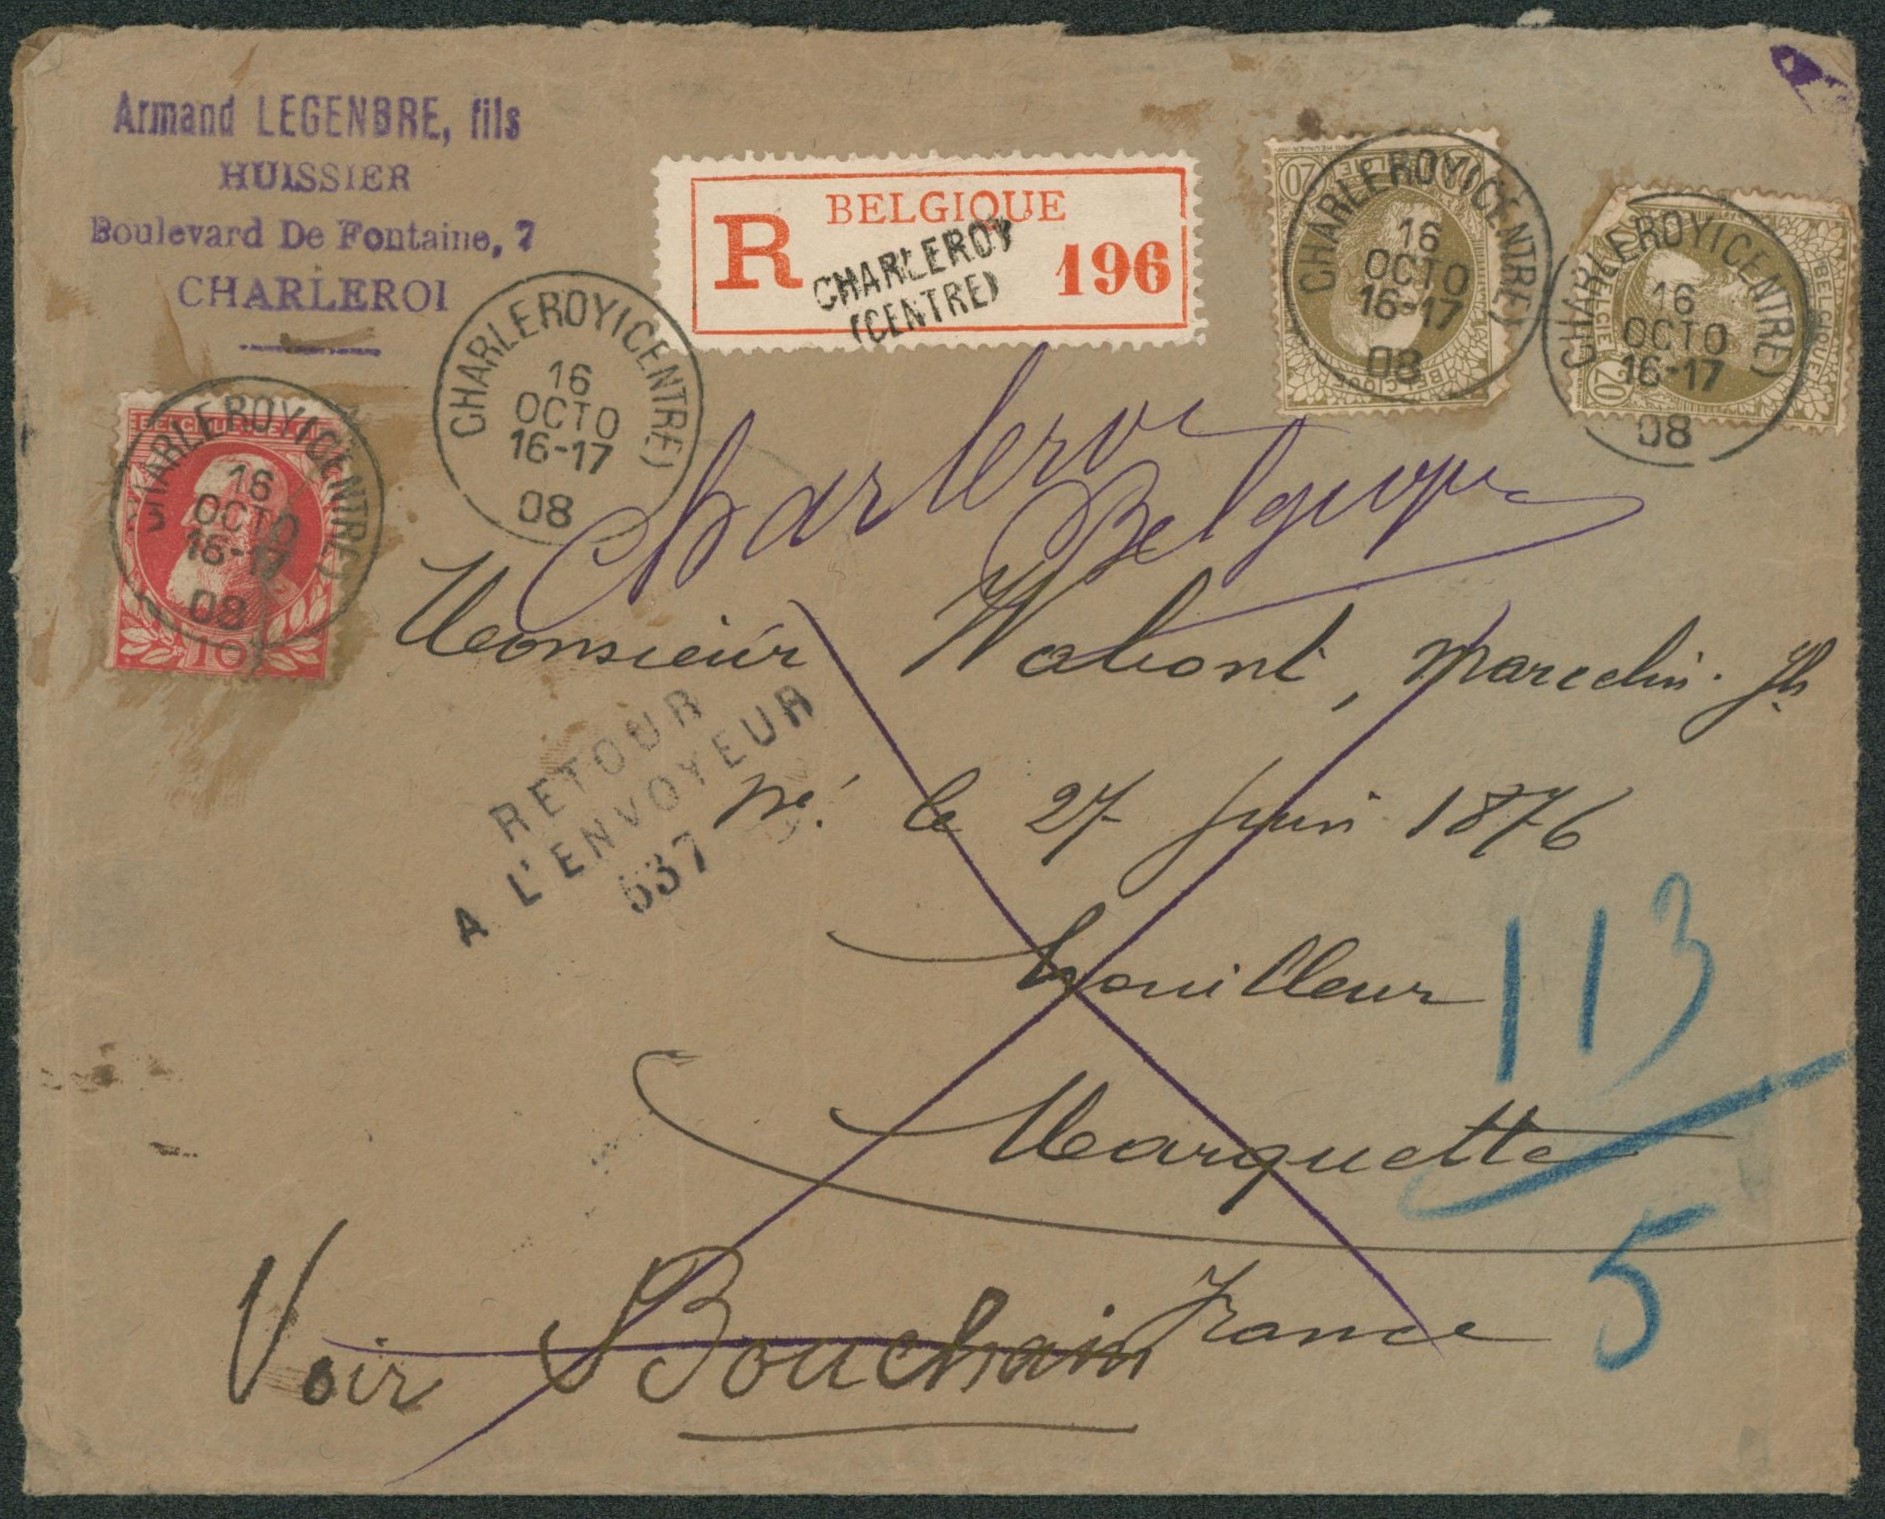 Armand LEGENBRE, fils
HUISSIER
Boulevard De Fontaine, 7
CHARLEROI
BELGIQUE
R
CHARLEROY
(CENTRE)
196
CHARLEROY (CENTRE)
16
OCTO
16-17
08
BELGIQUE
20
CHARLEROY (CENTRE)
16
OCTO
16-17
08
BELGIQUE
20
CHARLEROY (CENTRE)
16
OCTO
16-17
08
CHARLEROY (CENTRE)
16
OCTO
16-17
08
10
Charleroi
Belgique
Monsieur Marcelin. Jh
RETOUR
A L'ENVOYEUR
537
né le 27 juin 1876
houilleur
113
Marquette
5
France
Voir Bouchain